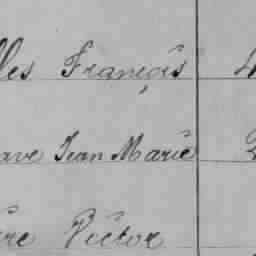 lles François
ave Jean Marie
re Victor